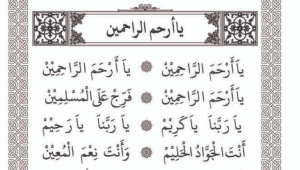 ياأرحم الراحمين
يَاأَرْحَمَ الرَّاحِمِيْنْ ۞ يَا أَرْحَمَ الرَّاحِمِيْنْ
يَاأَرْحَمَ الرَّاحِمِيْنْ ۞ فَرِّجْ عَلَى الْمُسْلِمِيْنْ
يَا رَبَّنَا يَاكَرِيْمْ ۞ يَا رَبَّنَا يَارَحِيْمْ
أَنْتَ الْجَوَّادُ الْحَلِيْمْ ۞ وَأَنْتَ نِعْمَ الْمُعِيْنْ